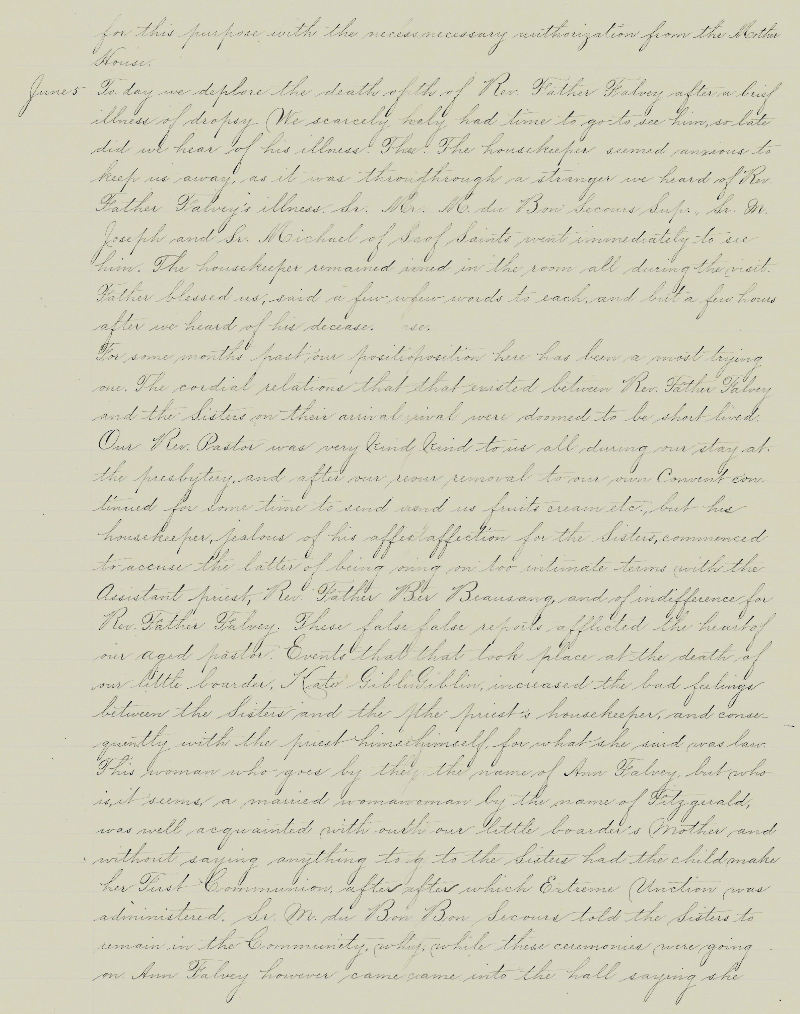 for this purpose with the necessnecessary authorization from the Mother
House.
June 5 To day we deplore the death ofth of Rev. Father Falvey after a brief
illness of dropsy. We scarcely hely had time to go to see him, so late
did we hear of his illness. The. The housekeeper seemed anxious to
keep us away, as it was througthrough a stranger we heard of Rev.
Father Falvey's illness. Sr. Mr. M. du Bon Secours Sup., Sr. M.
Joseph and Sr. Michael of Ssof Saints went immediately to see
him. The housekeeper remained ined in the room all during the visit.
Father blessed us, said a few wfew words to each, and but a few hours
after we heard of his decease. se.
For some months past, our positiposition here has been a most trying
one. The cordial relations that that existed between Rev. Father Falvey
and the Sisters on their arrival rival were doomed to be short lived.
Our Rev. Pastor was very kind kind to us all during our stay at
the presbytery, and after our remov removal to our own Convent con-
tinued for some time to send usnd us fruits cream etc., but his
housekeeper, jealous of his affecaffection for the Sisters, commenced
to accuse the latter of being oing on too intimate terms with the
Assistant priest, Rev. Father Ber Beausang, and of indifference for
Rev. Father Falvey. These false false reports afflicted the heart of
our aged pastor. Events that that took place at the death of
our little boarder, Kate GiblinGiblin, increased the bad feelings
between the Sisters and the pthe priest's housekeeper, and conse-
quently with the priest himsehimself, for what she said was law.
This woman who goes by the the name of Ann Falvey, but who
is, it seems, a married womawoman by the name of Fitzgerald,
was well acquainted with outh our little boarder's Mother and
without saying anything to to the Sisters had the child make
her First Communion, after after which Extreme Unction was
administered. Sr. M. du Bon Bon Secours told the Sisters to
remain in the Community, why, while these ceremonies were going
on Ann Falvey however came came into the hall saying she